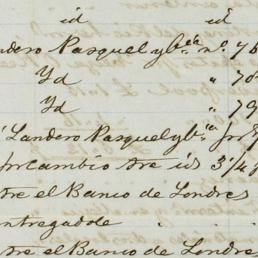 id id
Landero Pasquel y Ca no. 76
Yd " 70
Yd " 79
Landero Pasquel y Ca
cambio tre id 3 1/4
tre el Banco de Londres
entregadole
tre el Banco de Londres